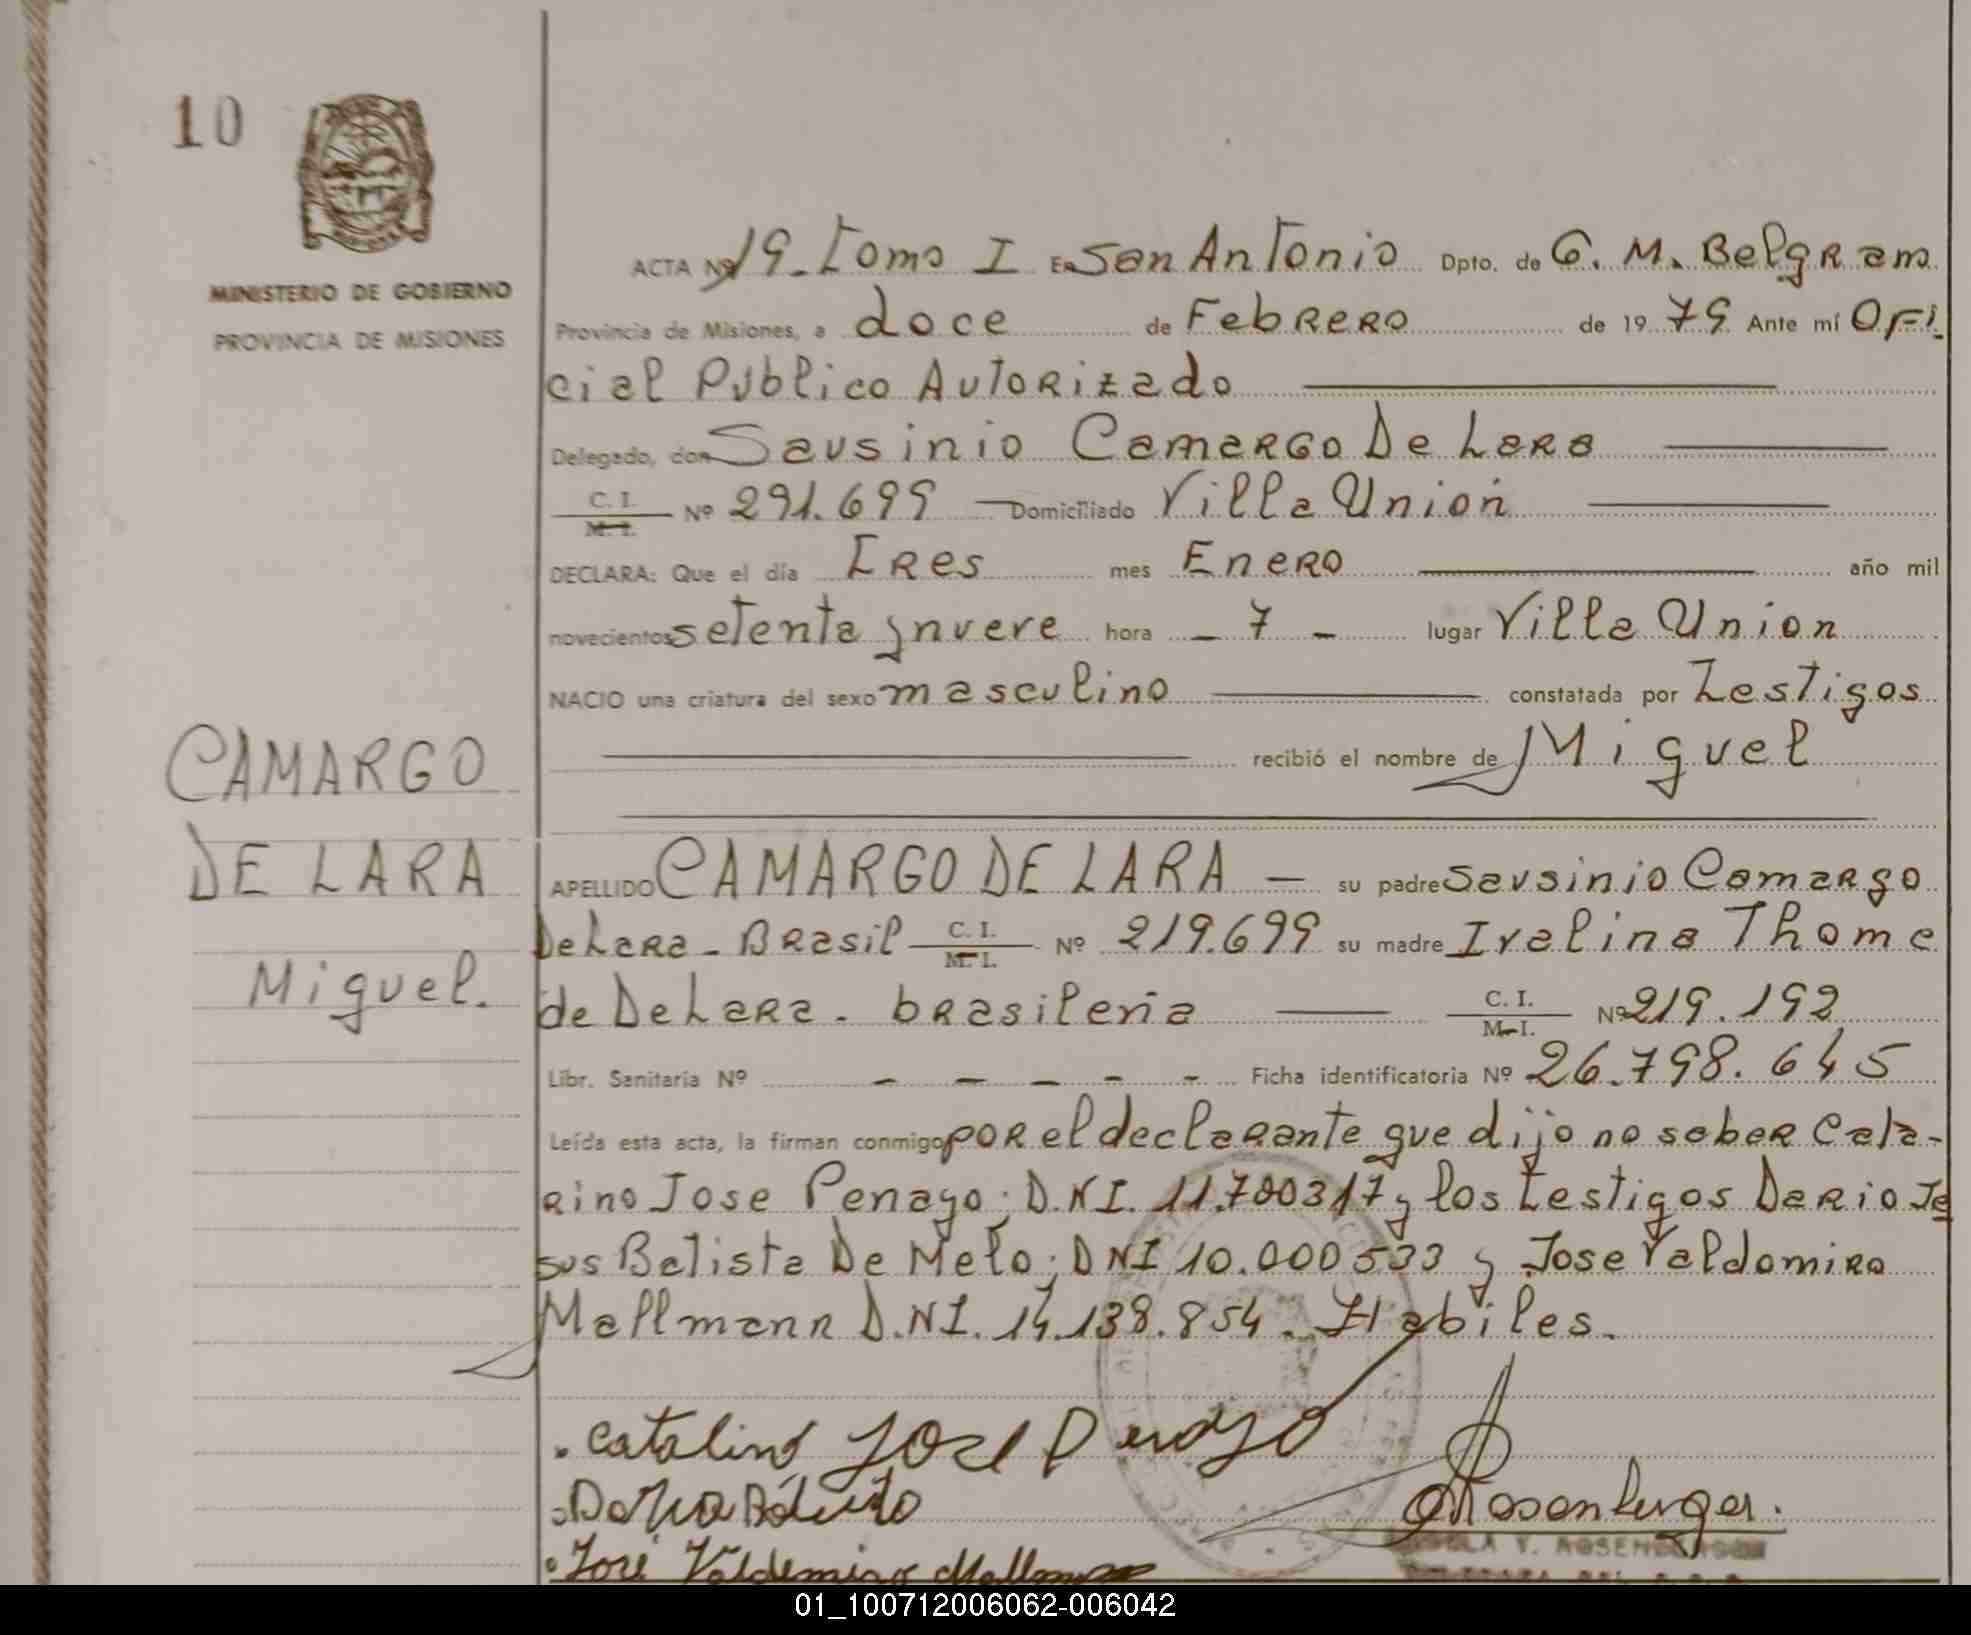 10
MINISTERIO DE GOBIERNO
PROVINCIA DE MISIONES
CAMARGO
DE LARA
Miguel.
ACTA Nº 19. Tomo I En San Antonio Dpto. de G. M. Belgrano
Provincia de Misiones, a doce de Febrero de 1979 Ante mí Ofi-
cial Público Autorizado
Delegado, don Sausinio Camargo De Lara
C. I. M. I. Nº 291.699 Domiciliado Villa Unión
DECLARA: Que el día Tres mes Enero año mil
novecientos setenta y nueve hora - 7 - lugar Villa Union
NACIO una criatura del sexo masculino constatada por Testigos
recibió el nombre de Miguel
APELLIDO CAMARGO DE LARA - su padre Sausinio Camargo
De Lara - Brasil C. I. M. I. Nº 219.699 su madre Iralina Thome
de De Lara. brasileña C. I. M. I. Nº 219.192
Libr. Sanitaria Nº - - - - - Ficha identificatoria Nº 26.798.645
Leída esta acta, la firman conmigo por el declarante que dijo no saber Cata-
rino Jose Penayo; D.N.I. 11.700317 y los testigos Dario Je
sus Batista De Melo; DNI 10.000533 y Jose Valdomiro
Mallmann D.N.I. 14.138.854. Habiles.
Catalino Jose Penayo
Rosenberger.
José Valdemiro Mallmann
01_100712006062-006042